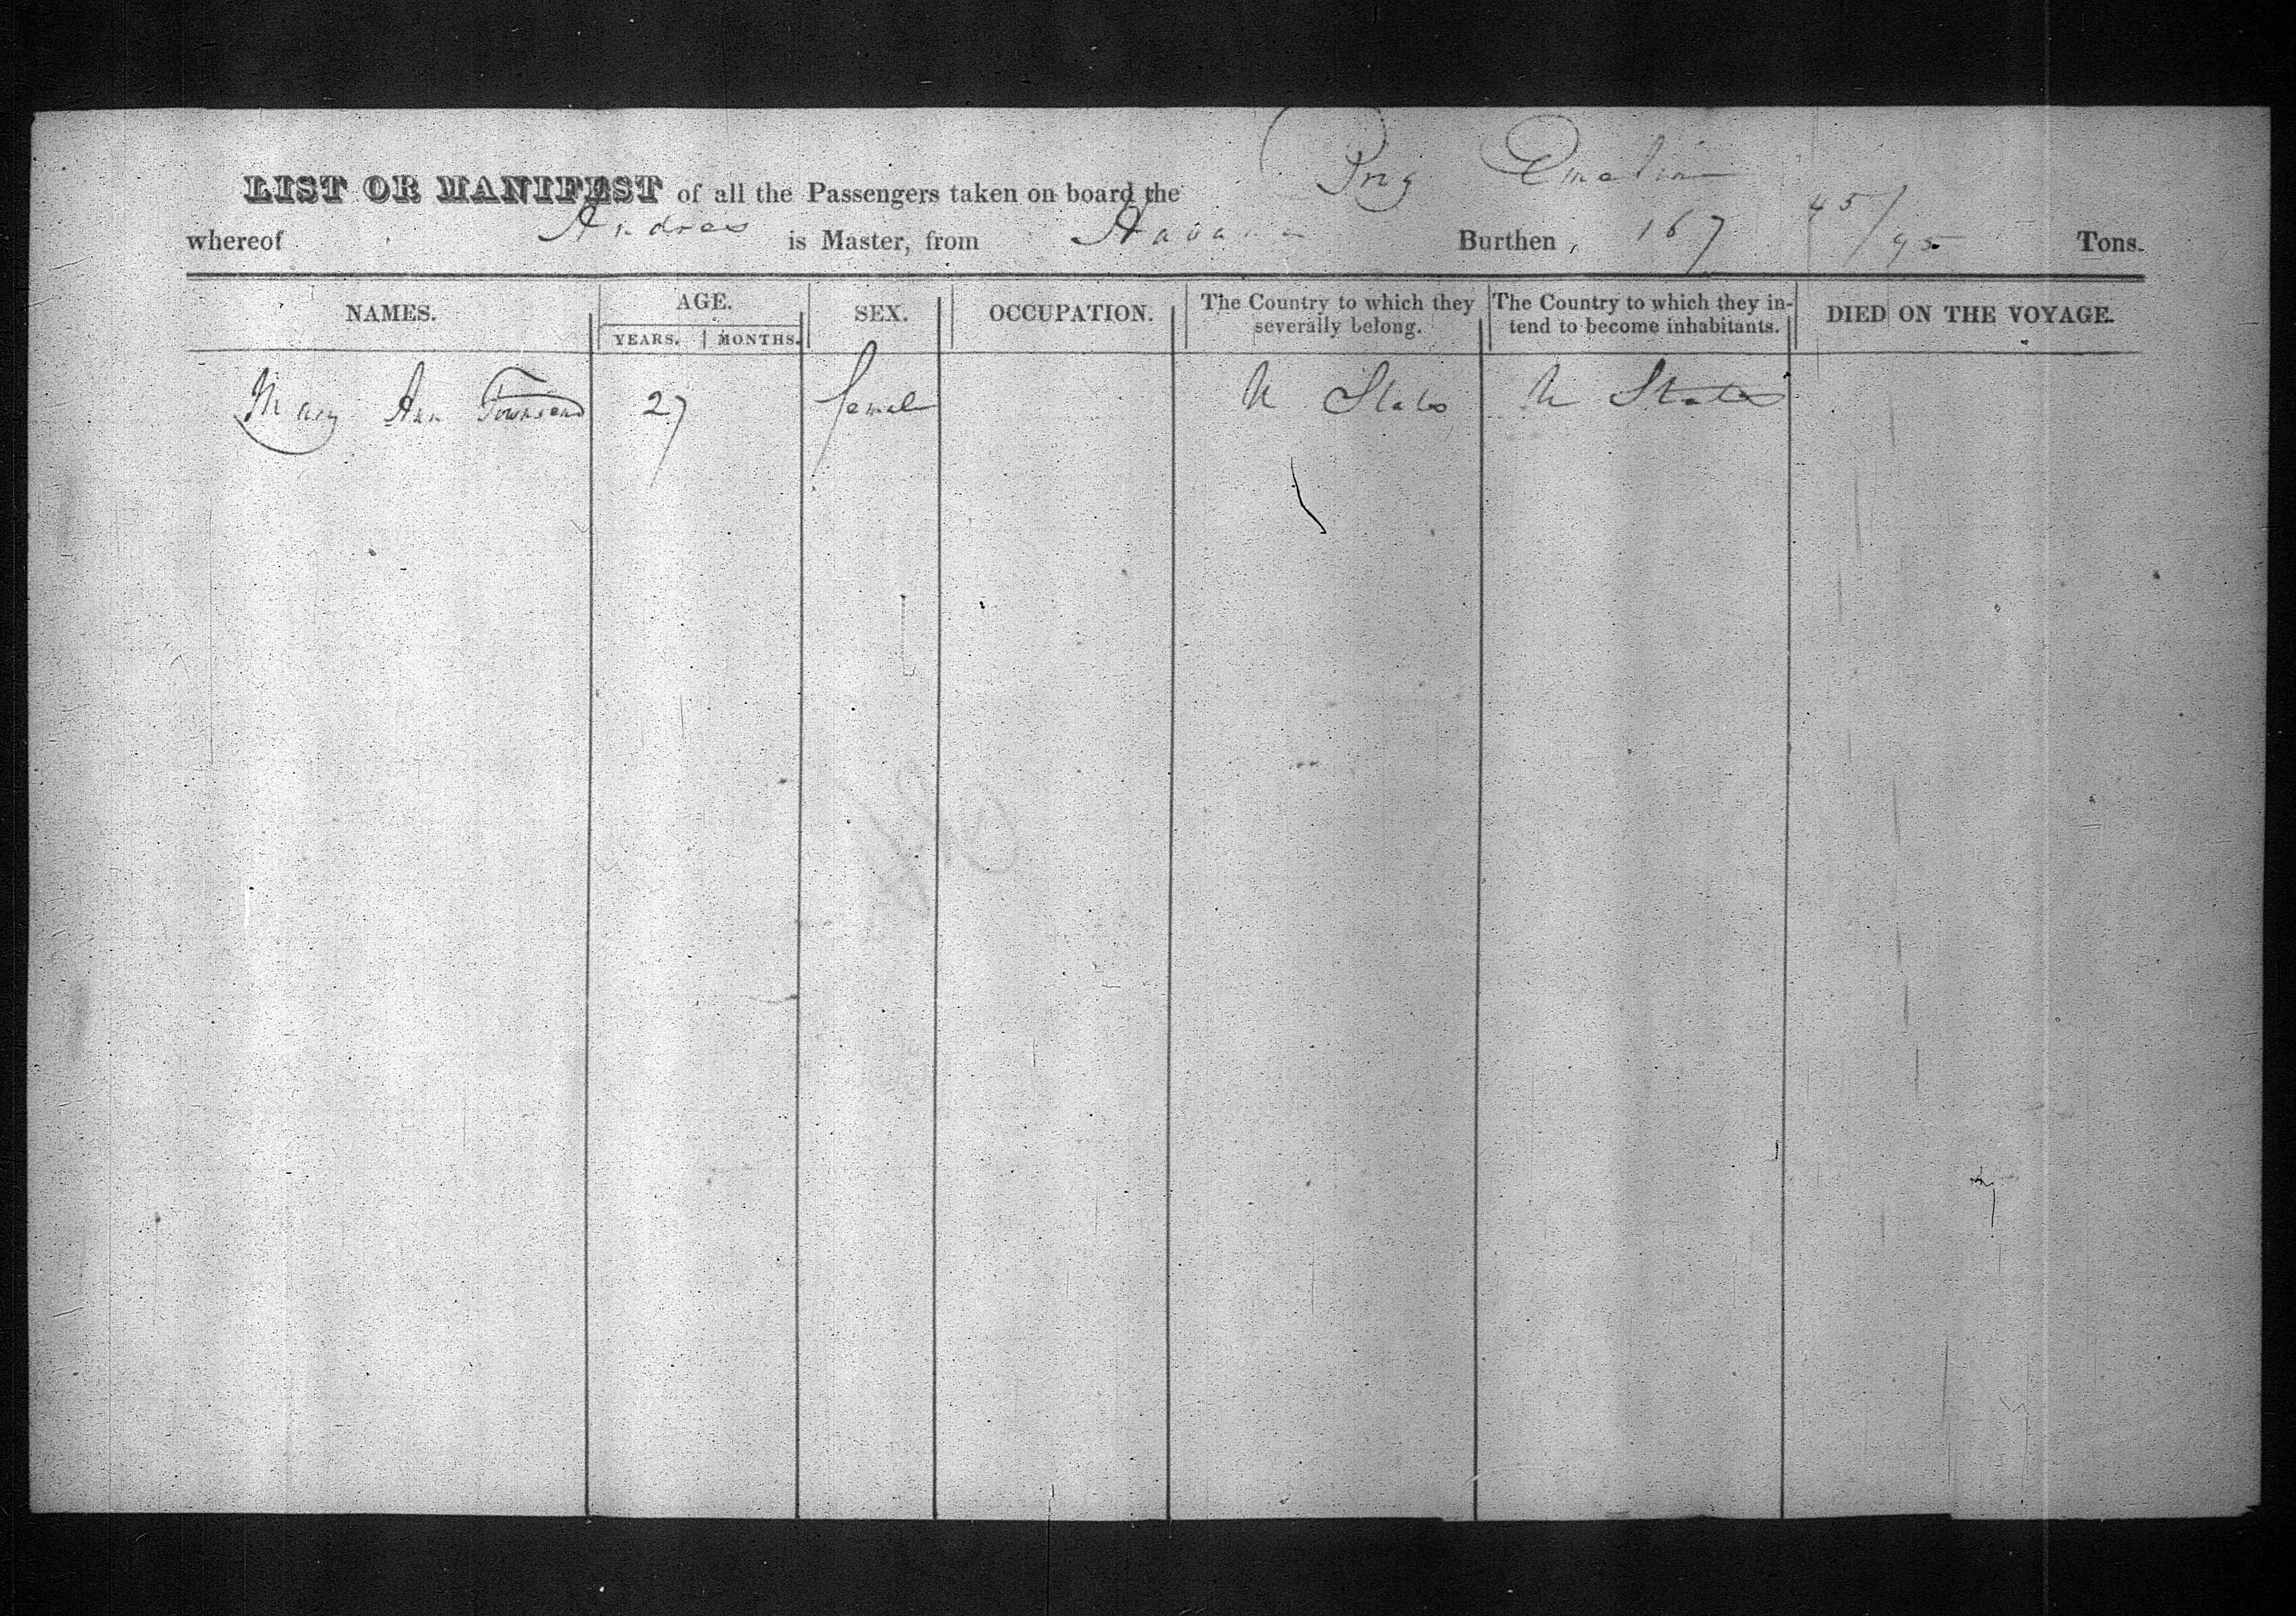 LIST OR MANIFEST of all the Passengers taken on board the Brig Emeline
whereof Andros is Master, from Havana Burthen, 167 45/95 Tons.
NAMES. AGE. SEX. OCCUPATION. The Country to which they severally belong. The Country to which they intend to become inhabitants. DIED ON THE VOYAGE.
YEARS. MONTHS.
Mary Ann Townsend 27 female U States U States